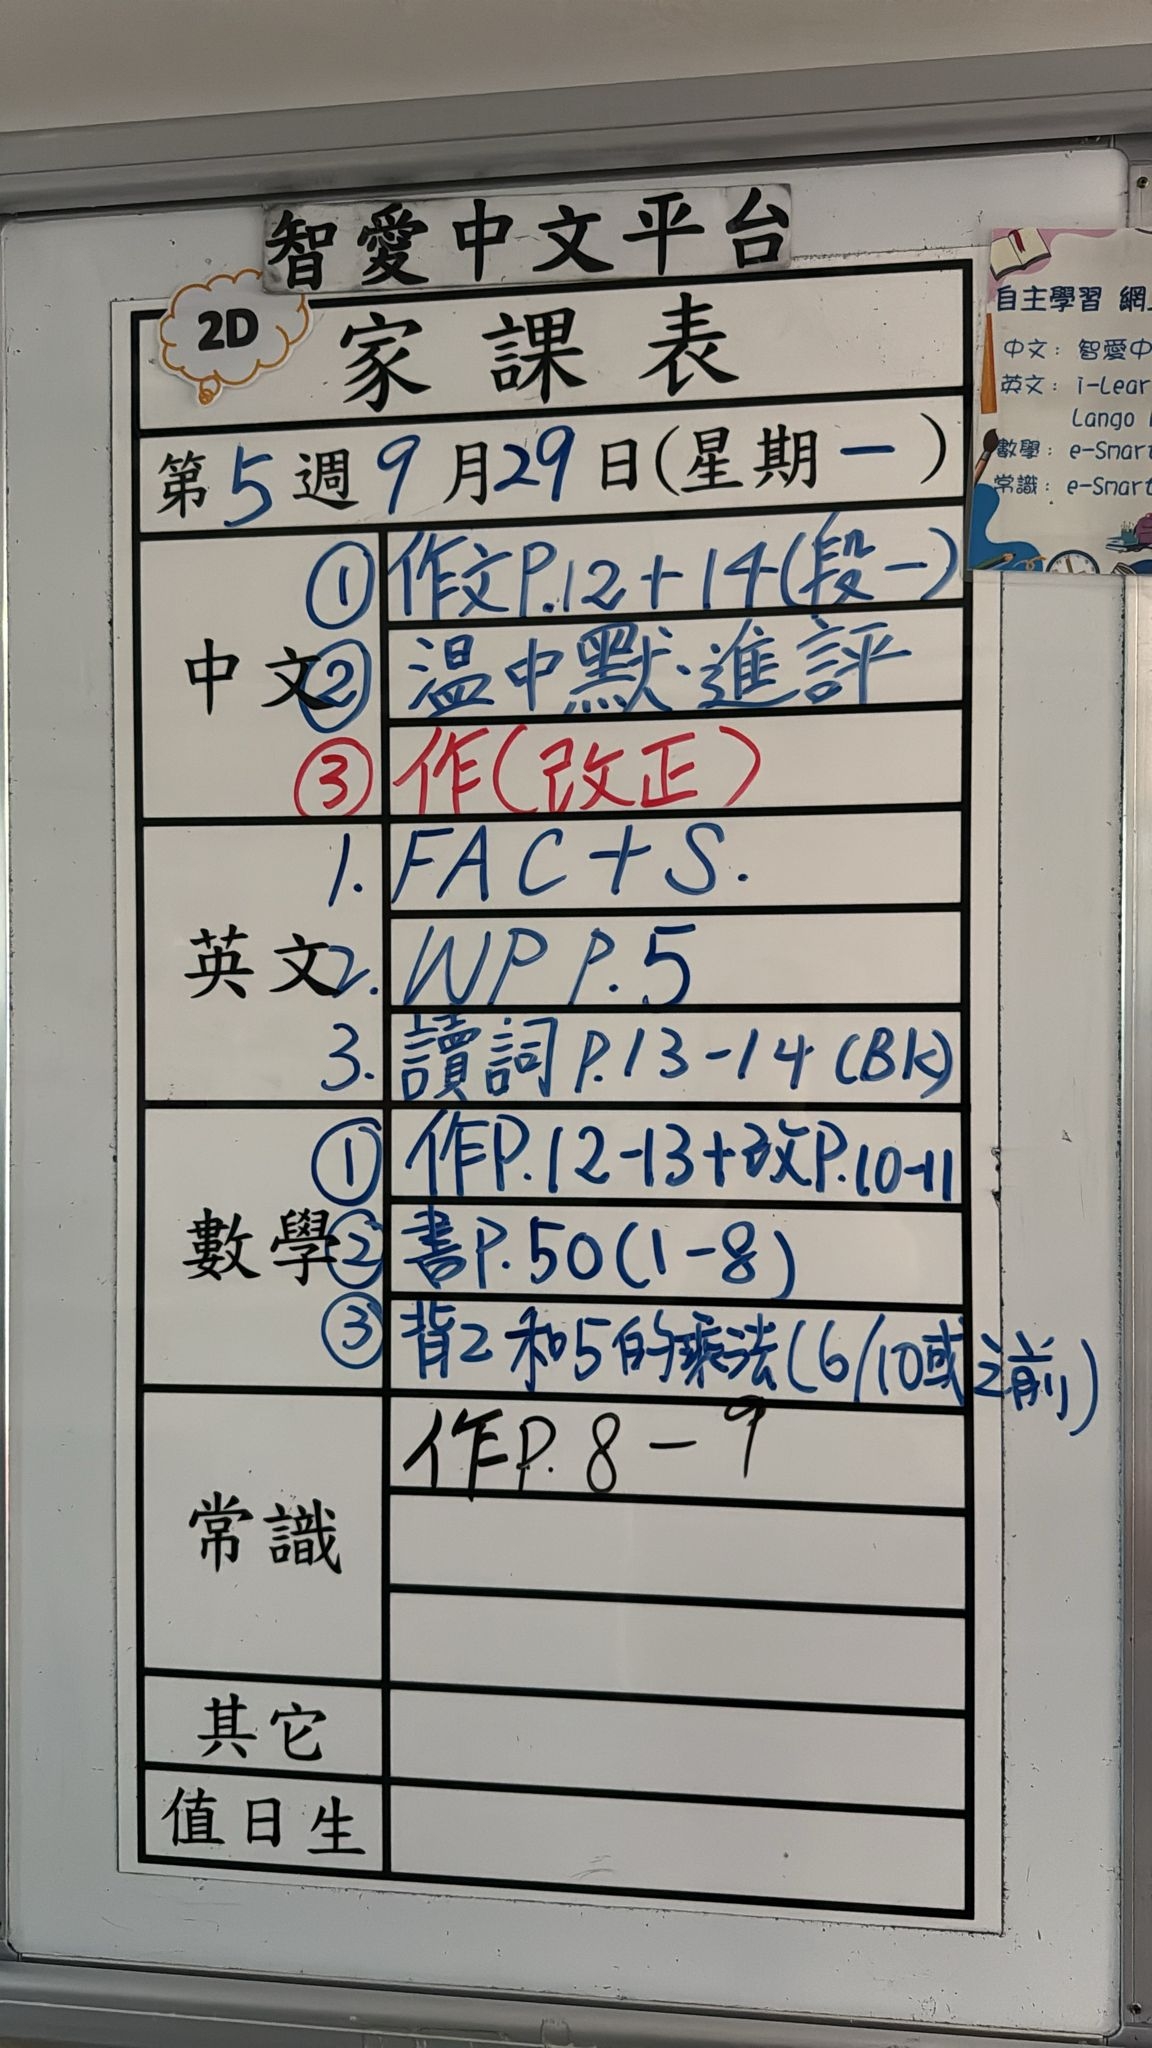 智愛中文平台
2D
家課表
第5週9月29日(星期一)
中文
①作文P.12+14(段一)
②温中默.進評
③作(改正)
英文
1. FAC+S.
2. WP P.5
3. 讀詞P.13-14 (BK)
數學
①作P.12-13+改P.10-11
②書P.50(1-8)
③背2和5的乘法(6/10或之前)
常識
作P.8-9
其它
值日生
自主學習 網
中文: 智愛中
英文: i-Lear
Lango
數學: e-Smart
常識: e-Smart